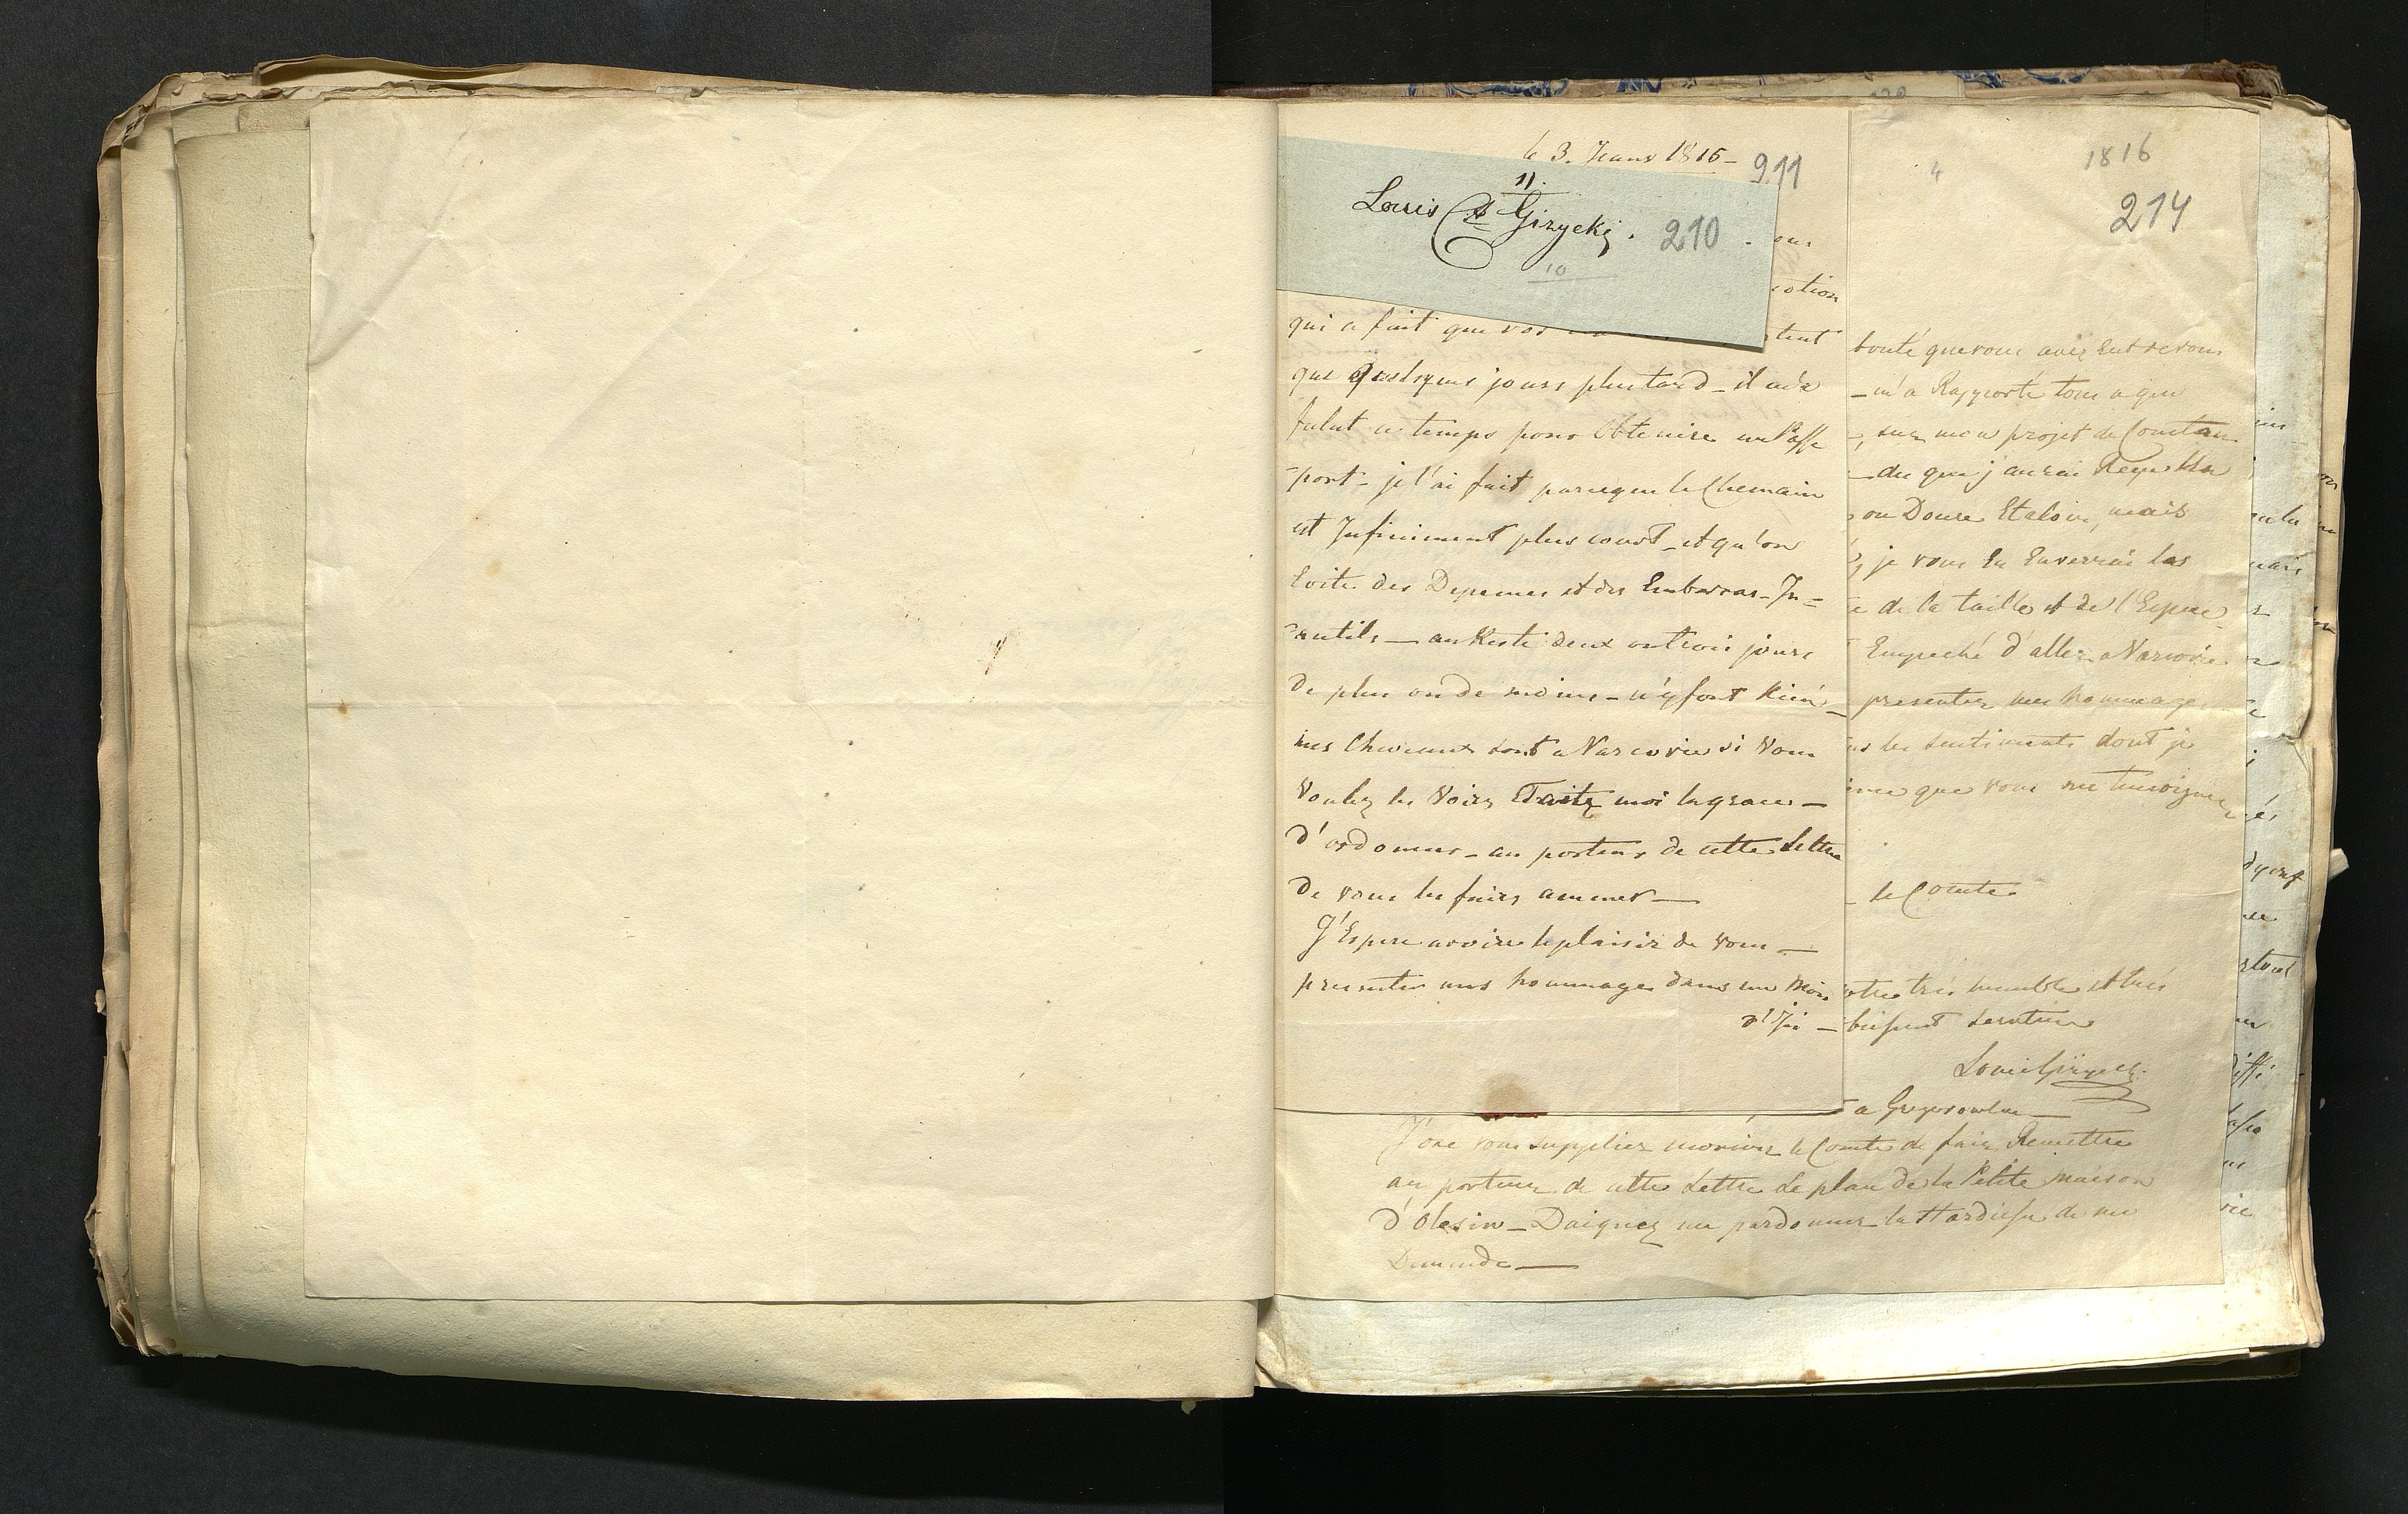 le 3. Janv 1816 - 911
11.
Louis Giżycki. 210
10
ous
otion
qui a fait que vos
que quelques jours plus tard - il m'a
falut ce temps pour Obtenire un Passe
port - je l'ai fait parceque le Chemain
est Infiniment plus court - et qu'on
Evite des Depenses et des Embarras - In=
=nutils - au Reste deux ou trois jours
de plus ou de moins - n'y font Rien -
mes Chevaux sont a Narcovie si Vous
Voulez les Voirs Faite moi la grace -
d'ordonner - au porteur de cette Lettre
de vous les faire ammener -
J'Espere avoire le plaisir de vous -
presenter mes hommages dans un Mois
d'Ici -
1816
4
214
bonté que vous avez Eut de vous
- m'a Rapporté tous a que
, sur mon projet de Constan
- du que j'aurai Reçu
ou Douze Etalons, mais
, je vous En Enverrai les
e de la taille et de l'Espece
Empeché d'aller a Narcovie
presenter mes hommages
les sentiments dont je
que vous me temoignez
- le Comte
otre tres humble et tres
beissant serviteur
Louis Giżycki
a
J'ose vous supplier le Comte de faire Remettre
au porteur de cette Lettre Le plan de la Petite Maison
d'Olesin - Daignez me pardonner la Hardiesse de ma
Demande -